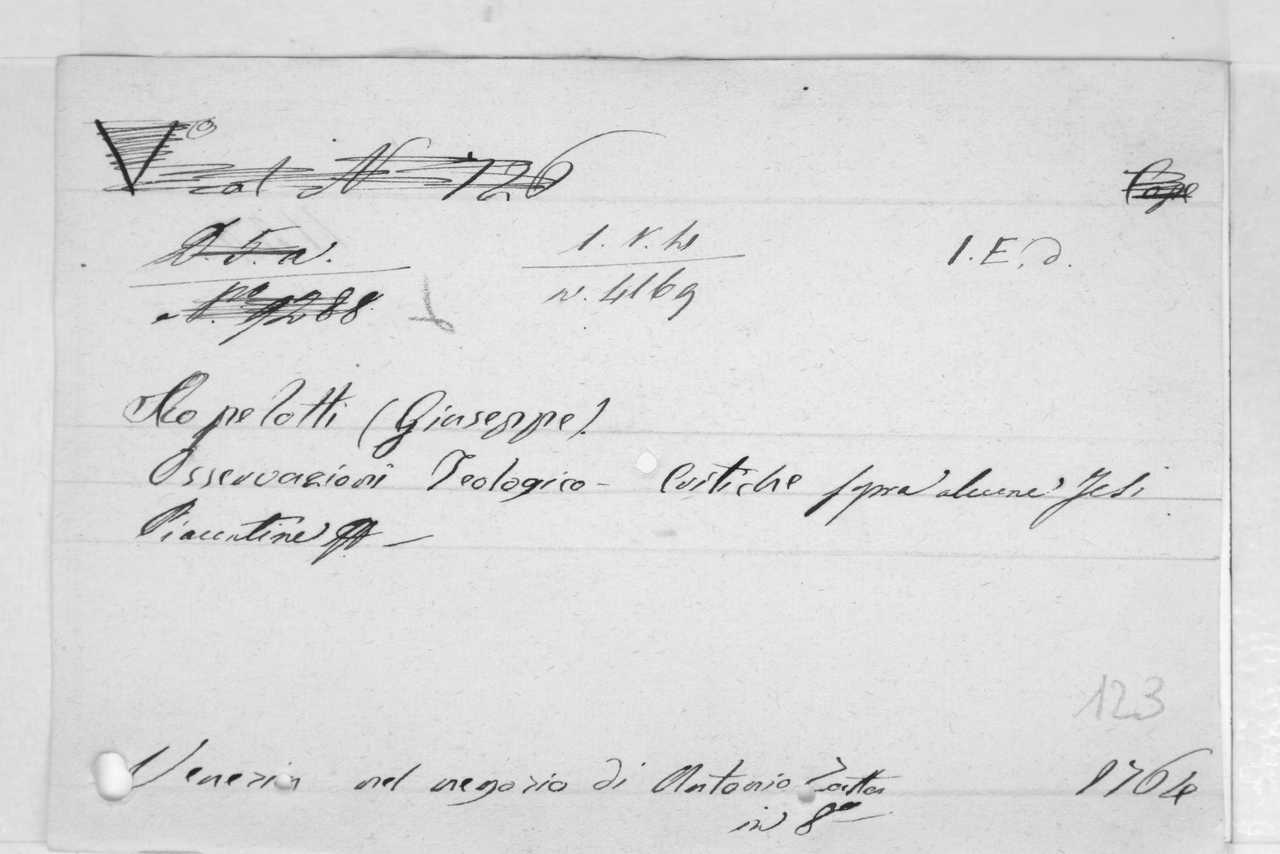 V° cat N 126
D. 5. a. 1. V. 4 1. E. d.
N. 1288 n. 4169
Copelotti (Giuseppe).
Osservazioni Teologico - Critiche sopra alcune Tesi
Piacentine
123
Venezia nel negozio di Antonio Zatta 1764
in 8°